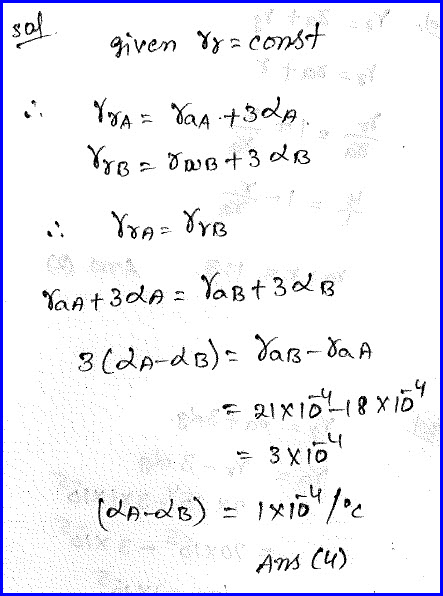 sol.
given γr = const
∴ γrA = γaA + 3αA.
γrB = γaB + 3αB
∴ γrA = γrB
γaA + 3αA = γaB + 3αB
3(αA-αB) = γaB - γaA
= 21×10⁻⁴-18×10⁻⁴
= 3×10⁻⁴
(αA-αB) = 1×10⁻⁴/°c
Ans (4)